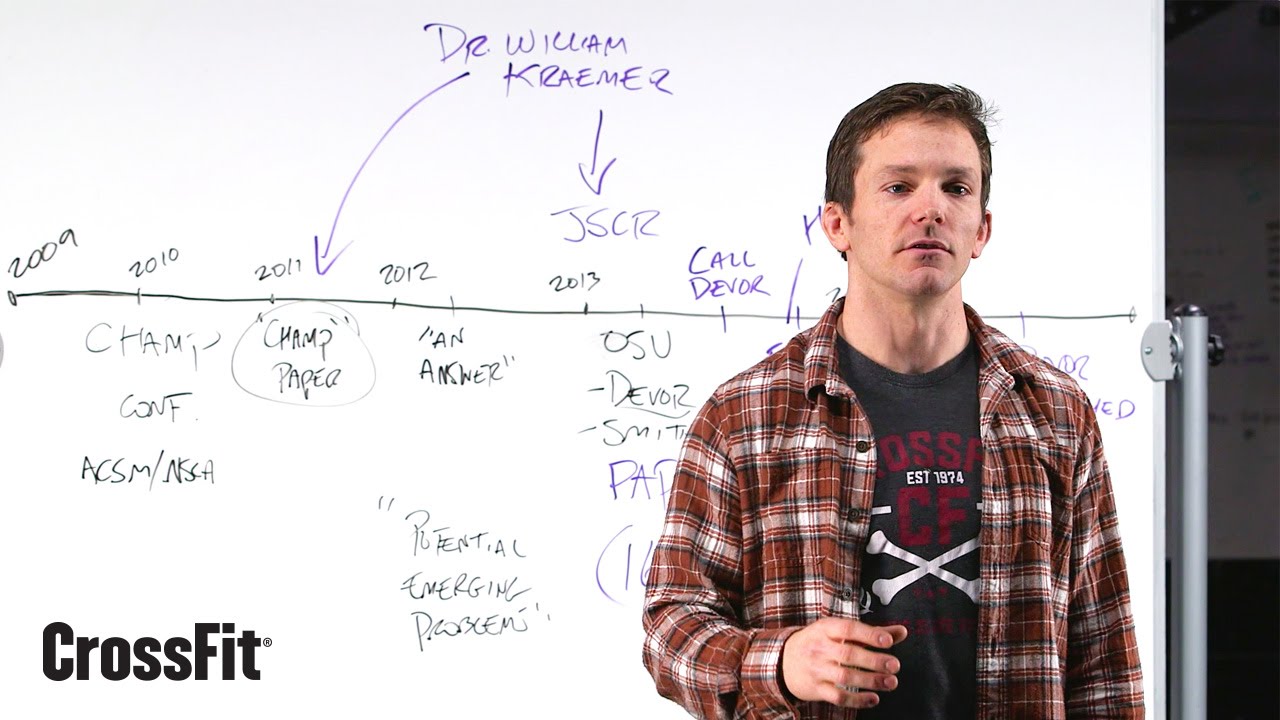 DR. WILLIAM
KRAEMER
JSCR
2009
2010
2011
2012
2013
CALL
DEVOR
CHAMP
CONF.
ACSM/NSCA
"CHAMP"
PAPER
"AN
ANSWER"
OSU
-DEVOR
-SMIT
PAP
(16
"POTENTIAL
EMERGING
PROBLEM"
EST 1974
CF
CrossFit®